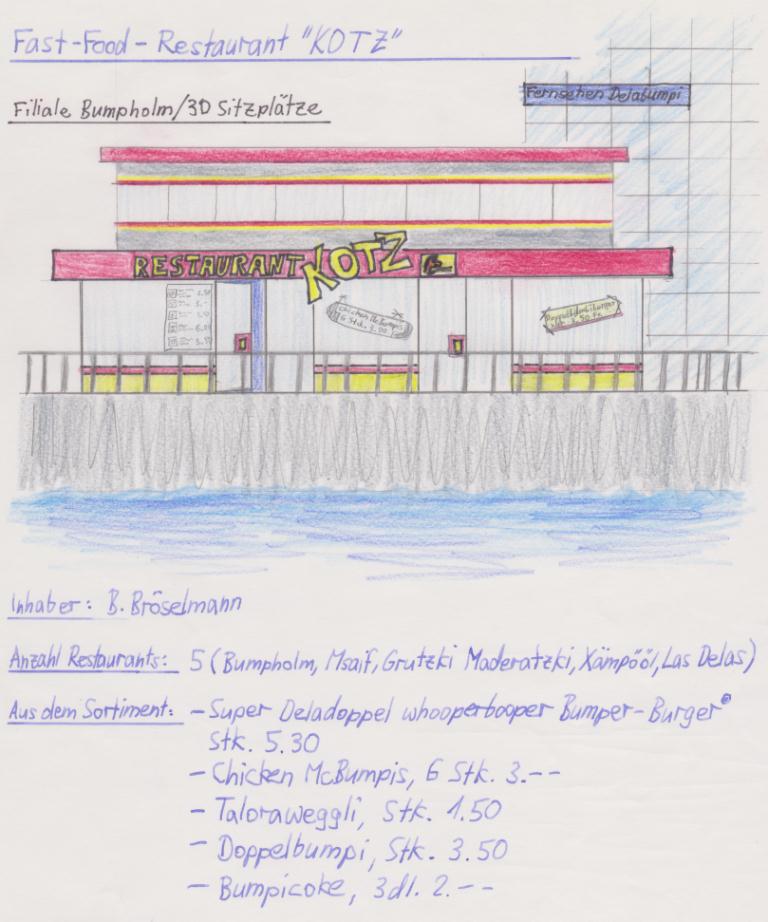 Fast-Food-Restaurant "KOTZ"
Filiale Bumpholm/30 Sitzplätze
Fernsehen Delabumpi
RESTAURANT KOTZ
Chicken McBumpis
6 Stk. 3.00
3.50 Fr.
Inhaber: B. Bröselmann
Anzahl Restaurants: 5 (Bumpholm, Msaif, Grutzki Maderatzki, Xämpööl, Las Delas)
Aus dem Sortiment: - Super Deladoppel whooperbooper Bumper-Burger®
Stk. 5.30
- Chicken McBumpis, 6 Stk. 3.--
- Taloraweggli, Stk. 1.50
- Doppelbumpi, Stk. 3.50
- Bumpicoke, 3dl. 2.--